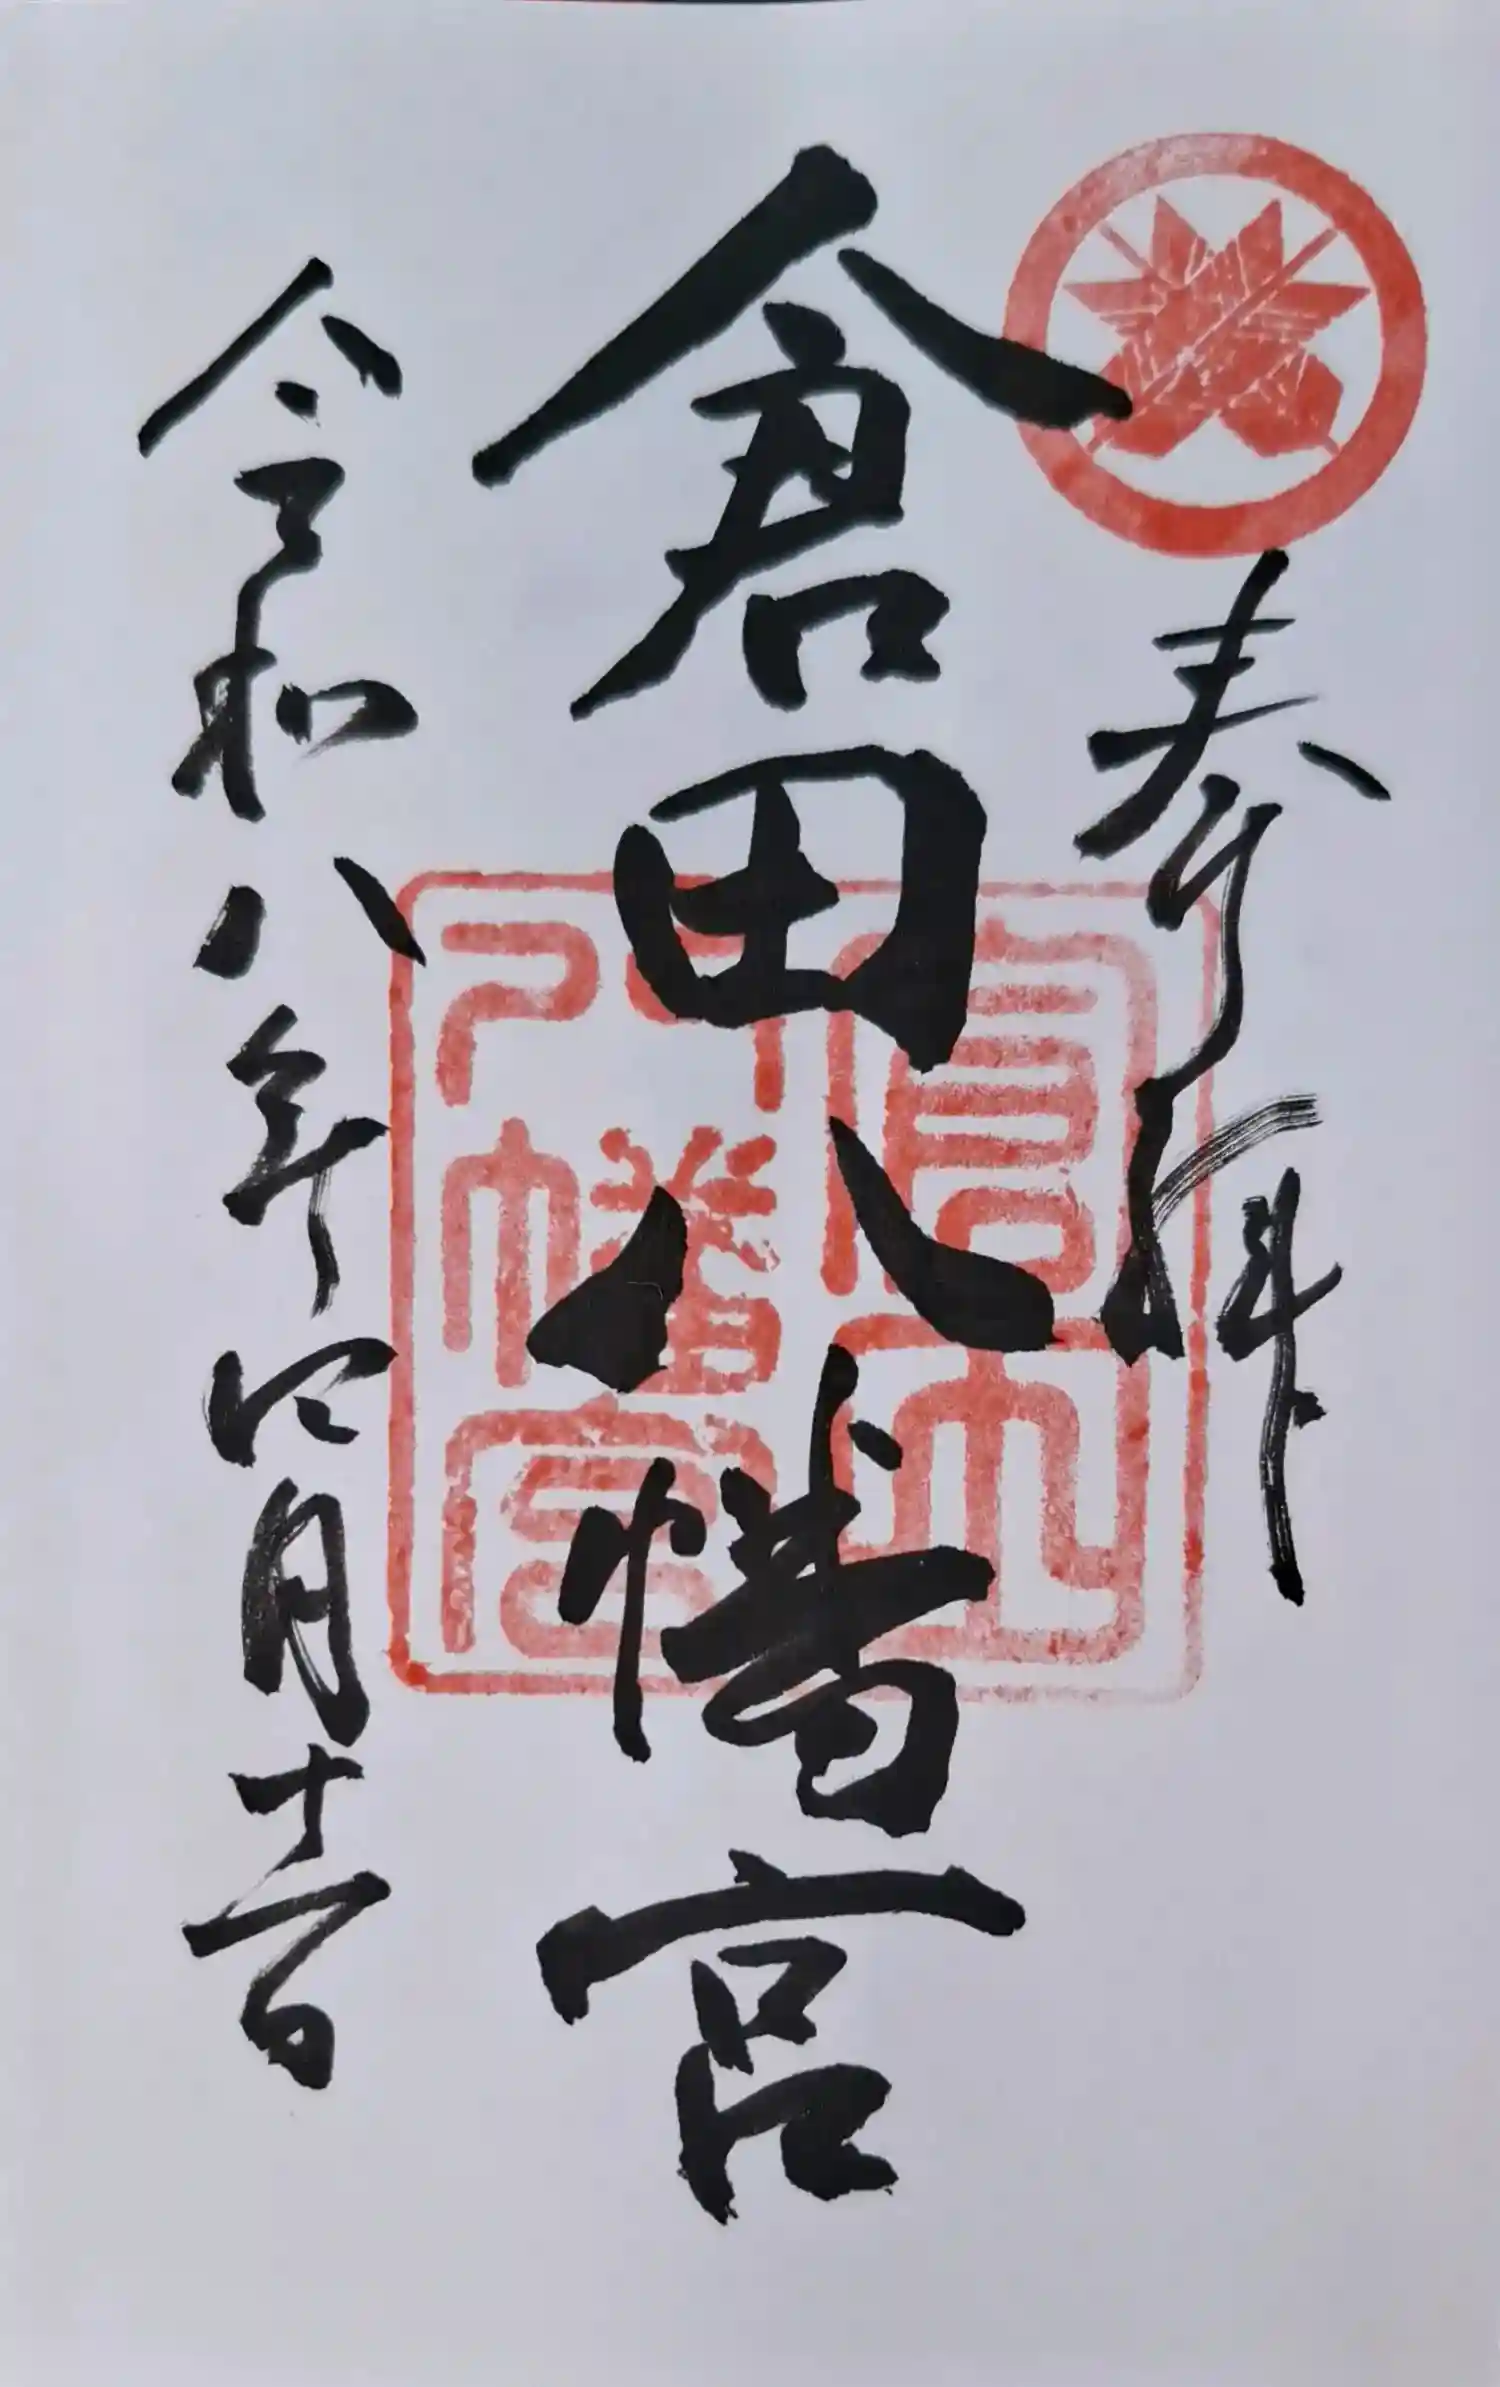 奉拝
倉田八幡宮
倉田
八幡宮
令和八年四月十二日